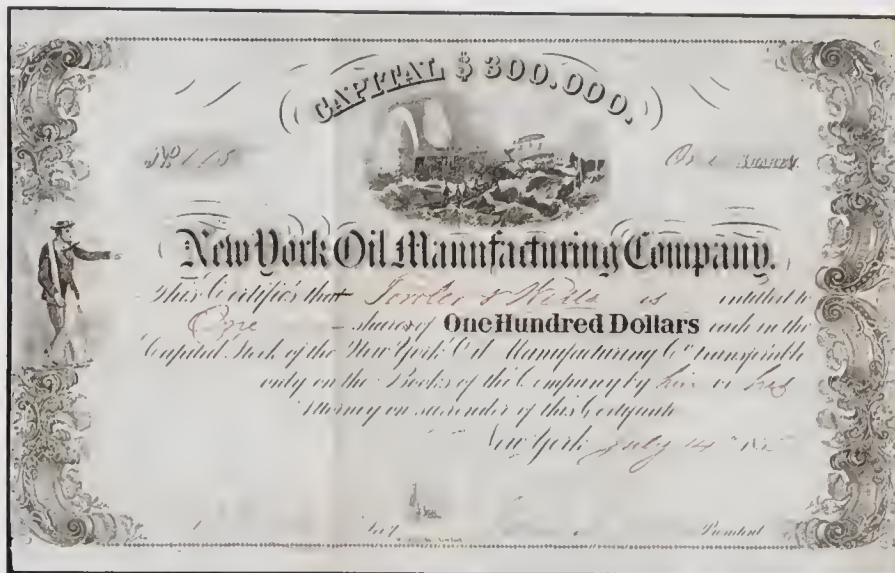 CAPITAL $300.000.
No 115
One SHARES.
New York Oil Manufacturing Company.
This Certifies that Fowler & Wells is entitled to
One shares of One Hundred Dollars each in the
Capital Stock of the New York Oil Manufacturing Co transferable
only on the Books of the Company by his or his
Attorney on surrender of this Certificate
New York July 14
Sec'y
President